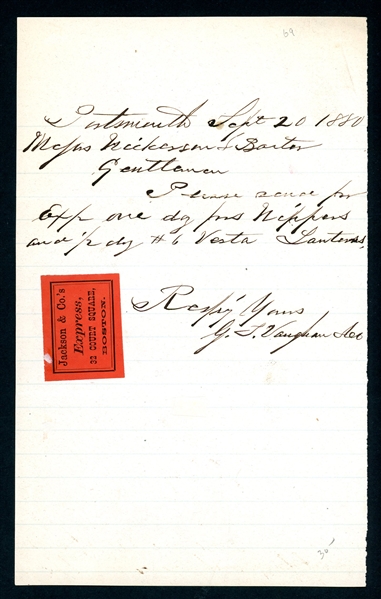 69
Portsmouth Sept 20 1880
Messrs Nickerson & Baxter
Gentlemen
Please send per
Exp one dz prs Nippers
and ½ dz #6 Vesta Lanterns,
Respy Yours
G. T. Vaughan & Co
Jackson & Co.'s
Express,
32 COURT SQUARE,
BOSTON.
30